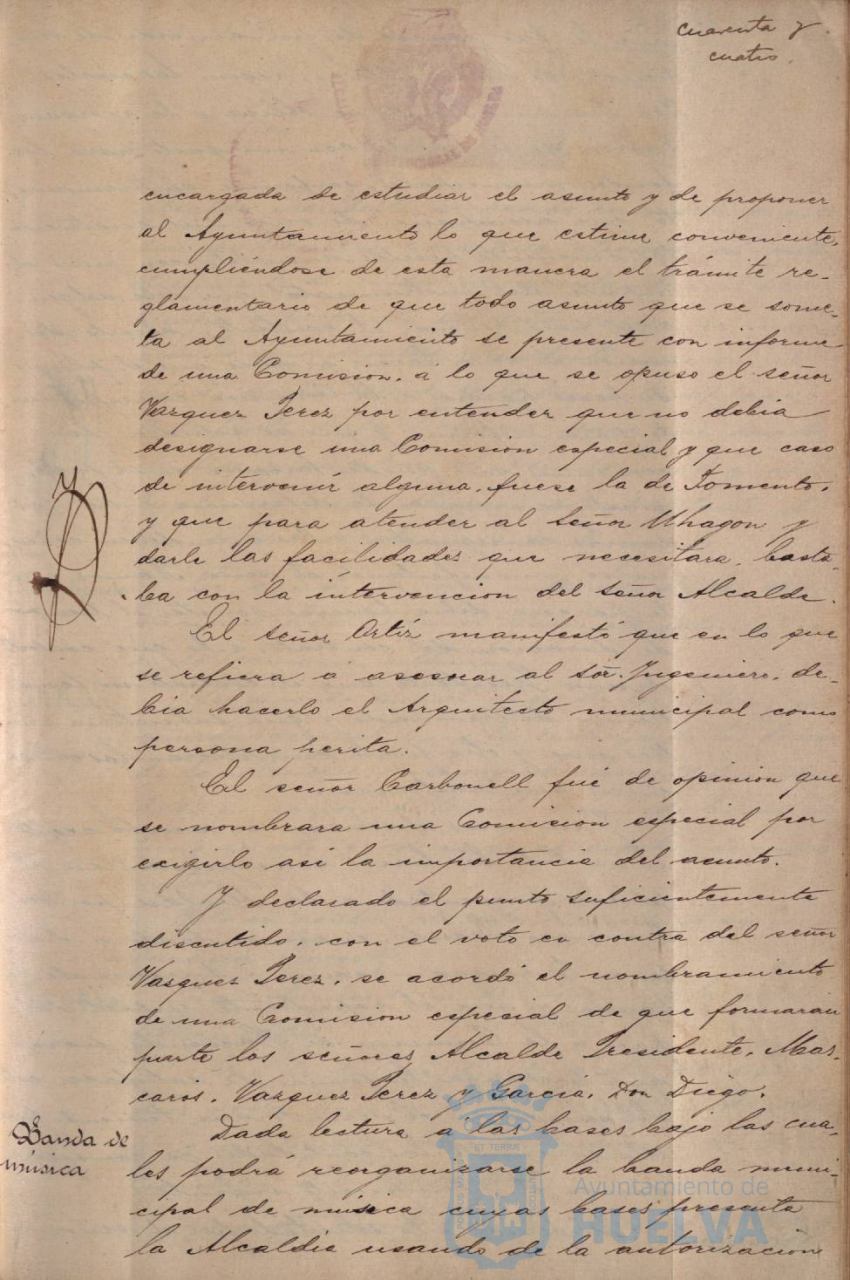 cuarenta y
cuatro.
encargada de estudiar el asunto y de proponer
al Ayuntamiento lo que estime conveniente,
cumpliéndose de esta manera el trámite re-
glamentario de que todo asunto que se some-
ta al Ayuntamiento se presente con informe
de una Comision. á lo que se opuso el señor
Vazquez Perez por entender que no debia
designarse una Comision especial y que caso
de intervenir alguna, fuese la de Fomento,
y que para atender al señor Uhagon y
darle las facilidades que necesitara, basta-
ba con la intervencion del señor Alcalde.
El señor Ortiz manifestó que en lo que
se refiera á asesorar al sor. Ingeniero, de-
bia hacerlo el Arquitecto municipal como
persona perita.
El señor Carbonell fué de opinion que
se nombrara una Comision especial por
exigirlo asi la importancia del asunto.
Y declarado el punto suficientemente
discutido, con el voto en contra del señor
Vasquez Perez, se acordó el nombramiento
de una Comision especial de que formarán
parte los señores Alcalde Presidente, Mas-
caros, Vazquez Perez y Garcia, Don Diego.
Banda de
música
Dada lectura á las bases bajo las cua-
les podrá reorganizarse la banda muni-
cipal de música cuyas bases presenta
la Alcaldia usando de la autorizacion
Ayuntamiento de
HUELVA